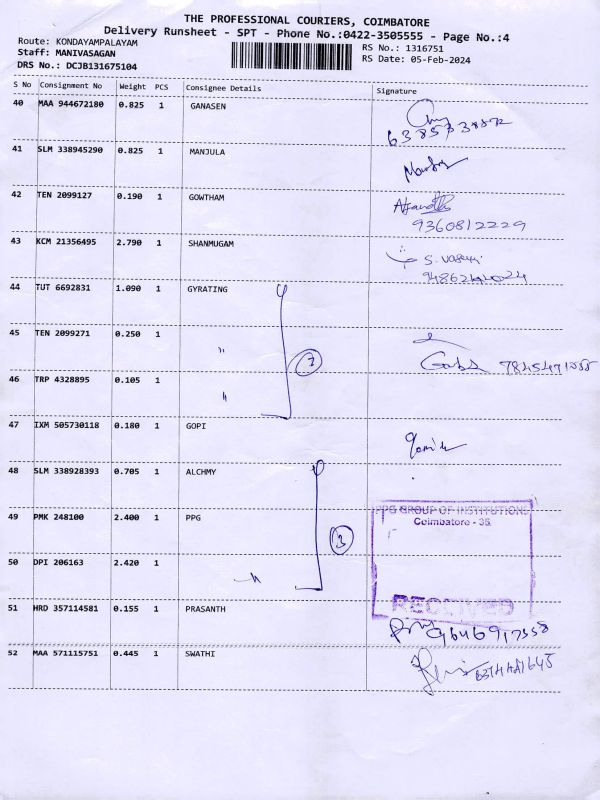 THE PROFESSIONAL COURIERS, COIMBATORE
Delivery Runsheet - SPT - Phone No.:0422-3505555 - Page No.:4
Route: KONDAYAMPALAYAM
Staff: MANIVASAGAN
DRS No.: DCJB131675104
RS No.: 1316751
RS Date: 05-Feb-2024
S No Consignment No Weight PCS Consignee Details Signature
40 MAA 944672180 0.825 1 GANASEN
41 SLM 338945290 0.825 1 MANJULA
42 TEN 2099127 0.190 1 GOWTHAM
9360812229
43 KCM 21356495 2.790 1 SHANMUGAM
44 TUT 6692831 1.090 1 GYRATING
45 TEN 2099271 0.250 1 "
46 TRP 4328895 0.105 1 "
47 IXM 505730118 0.180 1 GOPI
48 SLM 338928393 0.705 1 ALCHMY
49 PMK 248100 2.400 1 PPG
3
PPG GROUP OF INSTITUTIONS
Coimbatore - 35
RECEIVED
50 DPI 206163 2.420 1 "
51 HRD 357114581 0.155 1 PRASANTH
52 MAA 571115751 0.445 1 SWATHI